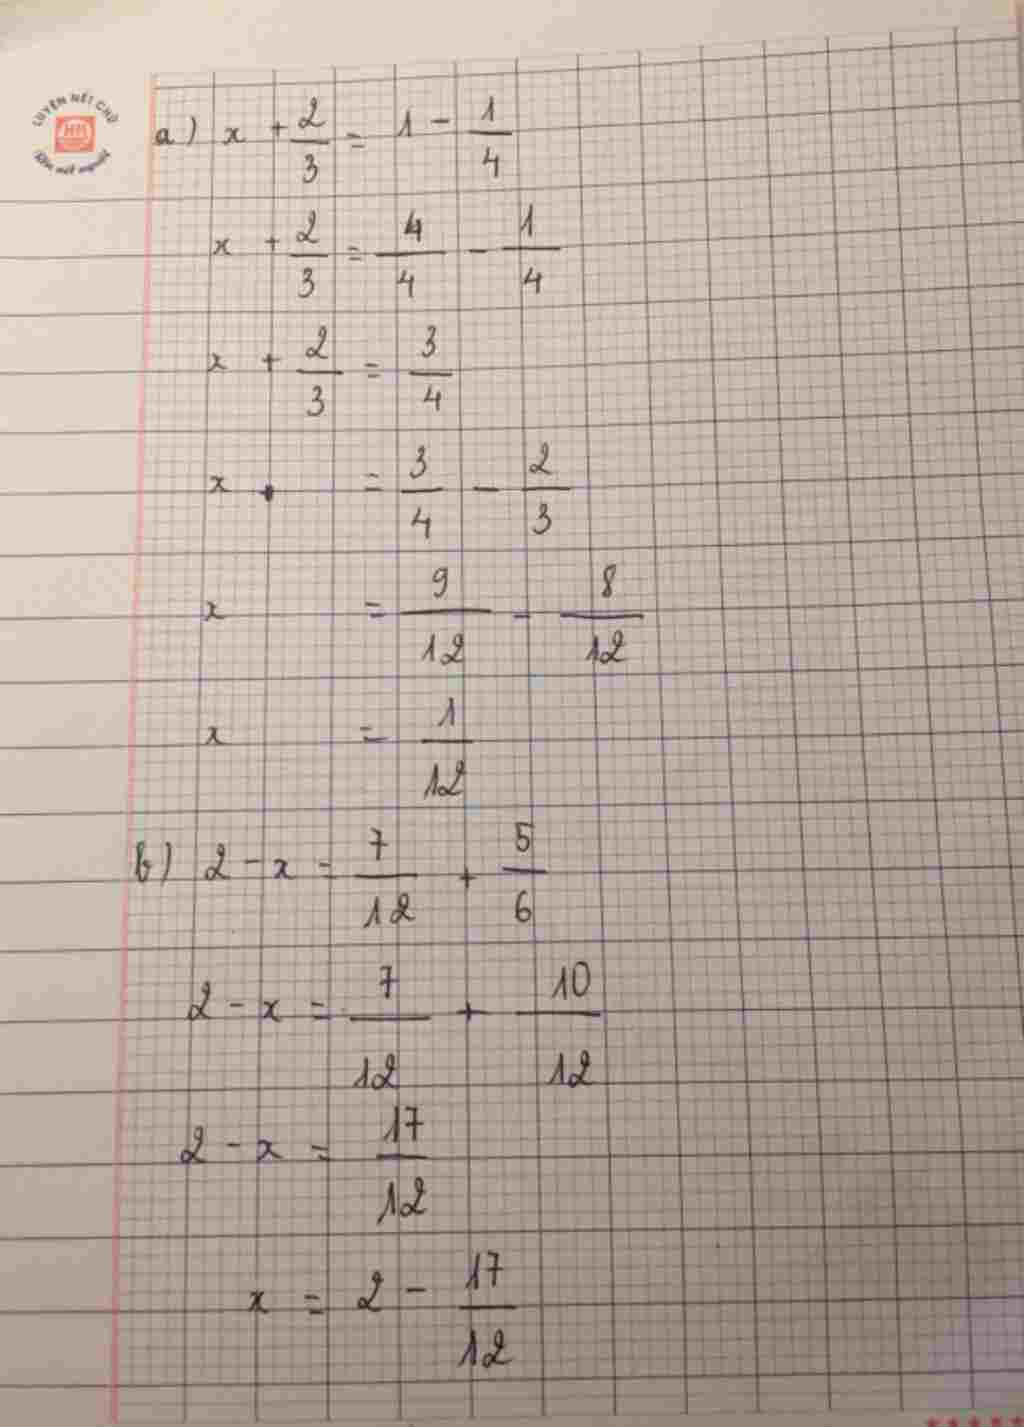 LUYỆN NÉT CHỮ
HH
RÈN NẾT NGƯỜI
a) x + 2/3 = 1 - 1/4
x + 2/3 = 4/4 - 1/4
x + 2/3 = 3/4
x = 3/4 - 2/3
x = 9/12 - 8/12
x = 1/12
b) 2 - x = 7/12 + 5/6
2 - x = 7/12 + 10/12
2 - x = 17/12
x = 2 - 17/12